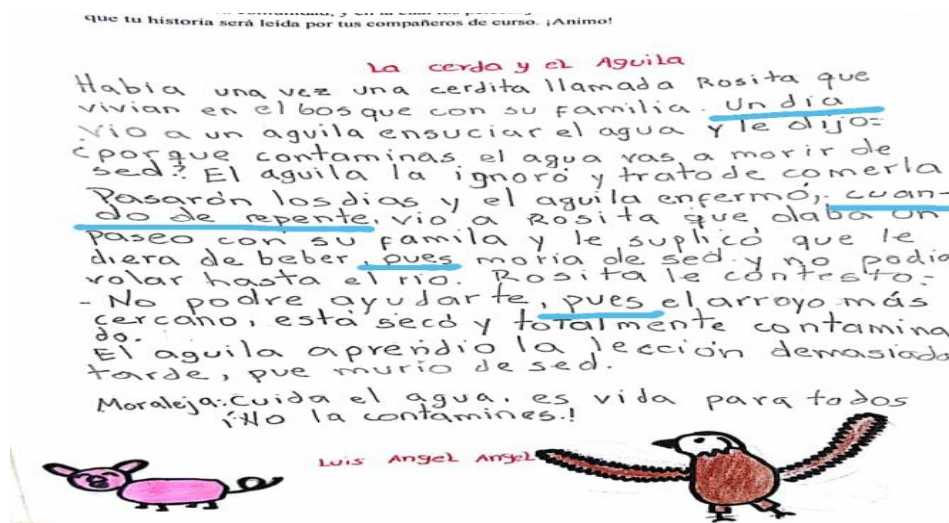 que tu historia será leída por tus compañeros de curso. ¡Animo!
La cerda y el Aguila
Había una vez una cerdita llamada Rosita que
vivian en el bosque con su familia. Un día
vio a un aguila ensuciar el agua y le dijo:
¿porque contaminas el agua vas a morir de
sed? El aguila la ignoró y trato de comerla
Pasarón los días y el aguila enfermó, cuan-
do de repente, vio a Rosita que daba un
paseo con su famila y le suplicó que le
diera de beber, pues moria de sed y no podia
volar hasta el río. Rosita le contesto:
- No podre ayudarte, pues el arroyo más
cercano, está secó y totalmente contamina
do.
El aguila aprendio la lección demasiado
tarde, pue murio de sed.
Moraleja: Cuida el agua, es vida para todos
¡No la contamines!
Luis Angel Angel